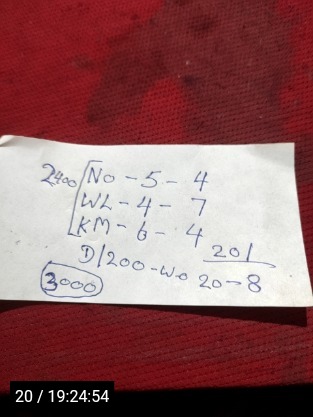 2400 [NO - 5 - 4
WL - 4 - 7
KM - 6 - 4
201
D/200 - WO 20 - 8
3000
20 / 19:24:54